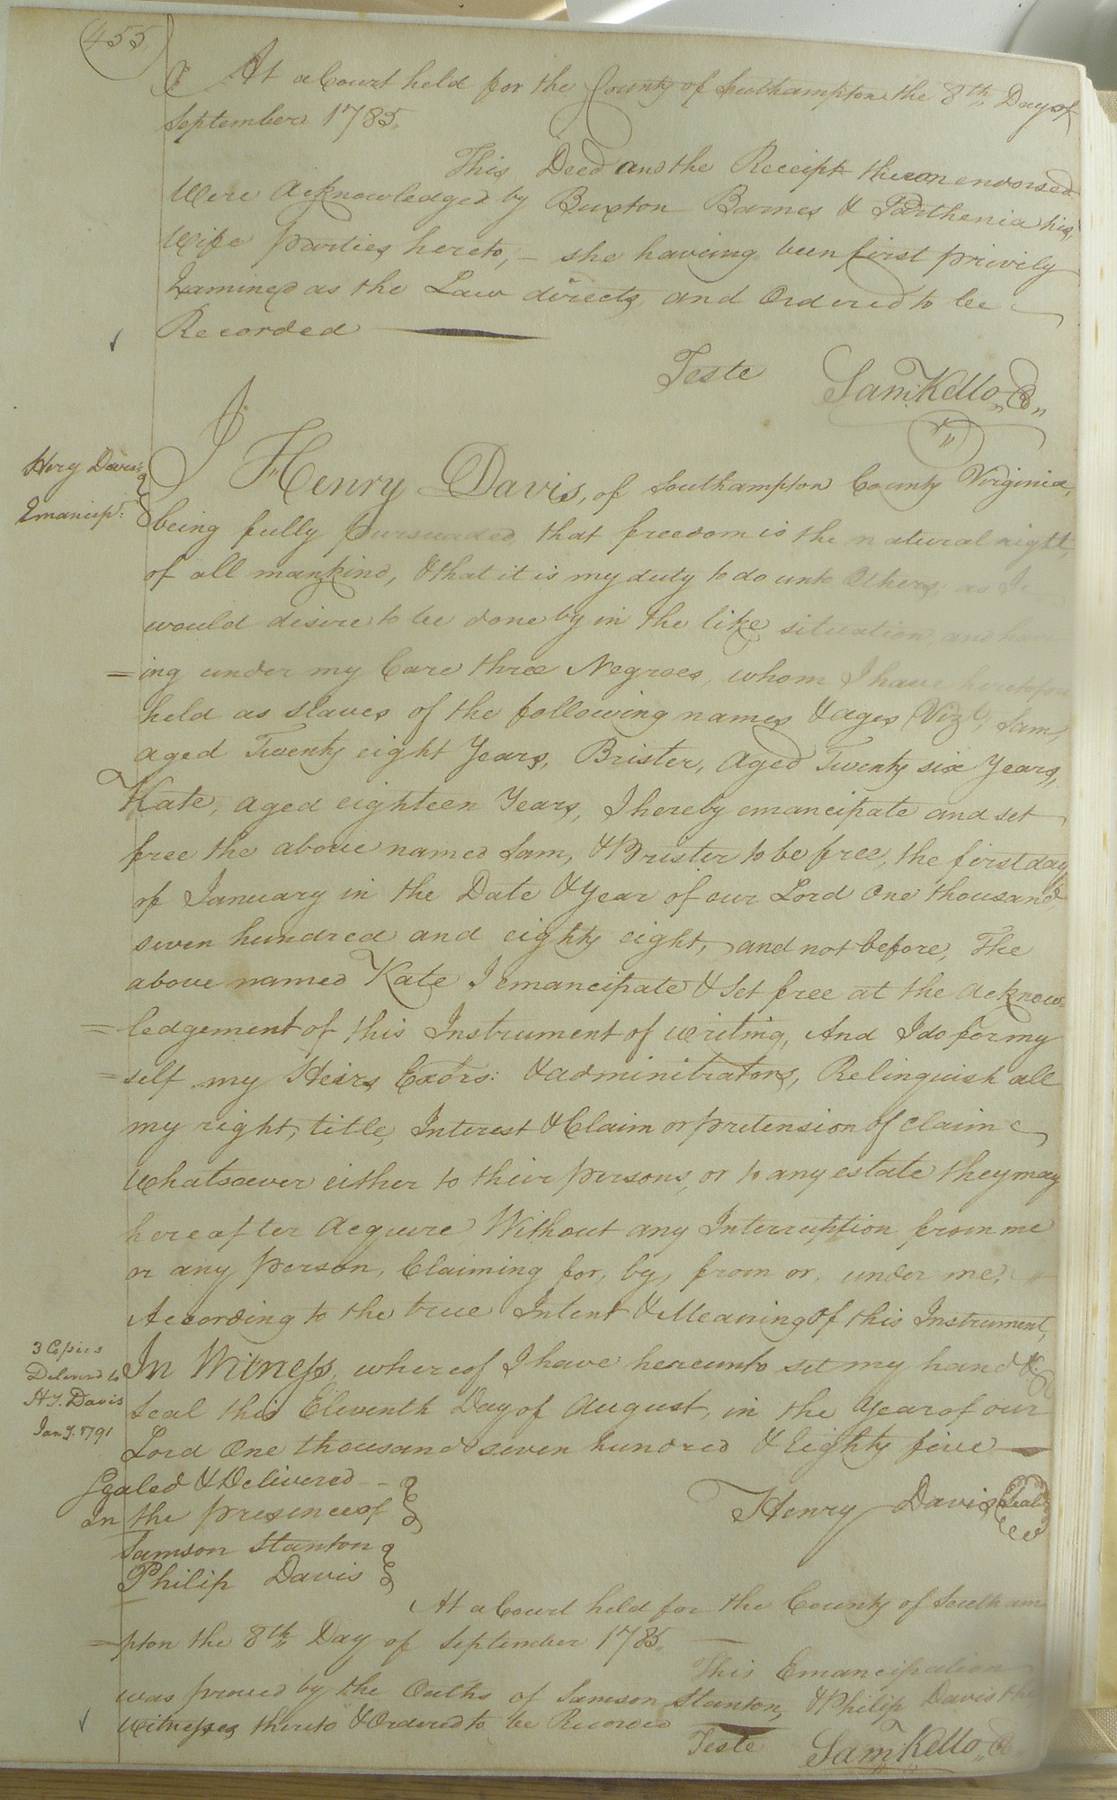 455
At a Court held for the County of Southampton the 8th Day of
September 1785.
This Deed and the Receipt thereon endorsed
Were Acknowledged by Buxton Barnes & Parthenia his
Wife parties hereto, - she having been first privily
Examined as the Law directs and Ordered to be
Recorded
Teste Sam. Kello
Henry Davis
Emancip.
I Henry Davis, of Southampton County Virginia,
being fully pursuaded that freedom is the natural right
of all mankind, & that it is my duty to do unto Others, as I
would desire to be done by in the like situation, and hav
=ing under my Care three Negroes, whom I have heretofore
held as slaves of the following names & ages Vizt, Sam,
aged Twenty eight Years, Brister, Aged Twenty six Years,
Kate, aged eighteen Years, I hereby emancipate and set
free the above named Sam, & Brister to be free, the first day
of January in the Date & Year of our Lord One thousand
seven hundred and eighty eight, and not before, The
above named Kate I emancipate & set free at the Acknow-
=ledgement of this Instrument of writing, And I do for my
=self my Heirs Exors: & administrators, Relinquish all
my right, title, Interest & Claim or pretension of Claim
Whatsoever either to their persons, or to any estate they may
hereafter Acquire Without any Interruption from me
or any person, Claiming for, by, from or under me,
According to the true Intent & Meaning of this Instrument,
3 Copies
Delivered to
H. Davis
Jany. 1791
In Witness whereof I have hereunto set my hand &
Seal this Eleventh Day of August, in the Year of our
Lord One thousand seven hundred & Eighty five
Sealed & Delivered
In the presence of
Henry Davis Seal
Samson Stanton
Philip Davis
At a Court held for the County of Southam
=pton the 8th Day of September 1785.
This Emancipation
was proved by the Oaths of Samson Stanton, & Philip Davis the
Witnesses thereto & Ordered to be Recorded
Teste Sam. Kello